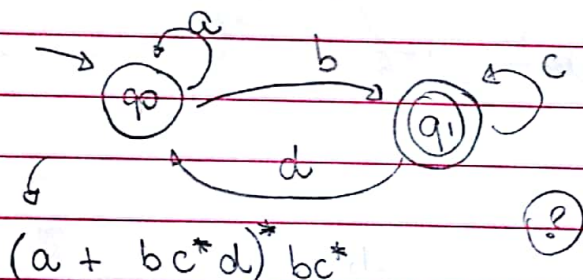 a
b
c
q0
q1
d
?
(a + bc*d)* bc*